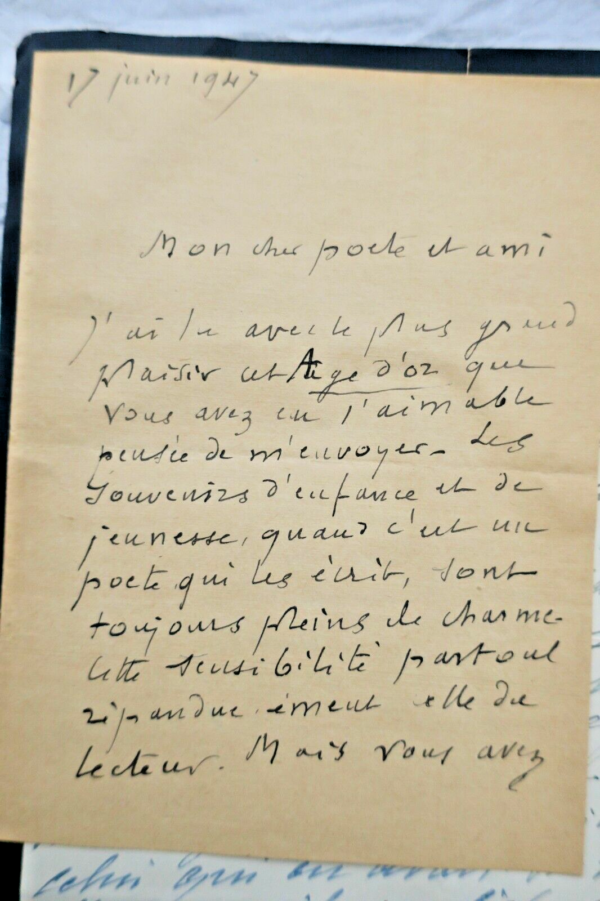 17 juin 1947
Mon cher poete et ami
J'ai lu avec le plus grand
plaisir cet Age d'or que
vous avez eu l'aimable
pensée de m'envoyer - Les
souvenirs d'enfance et de
jeunesse, quand c'est un
poete qui les écrit, sont
toujours pleins de charme -
Cette sensibilité partout
répandue émeut celle du
lecteur. Mais vous avez
celui qui